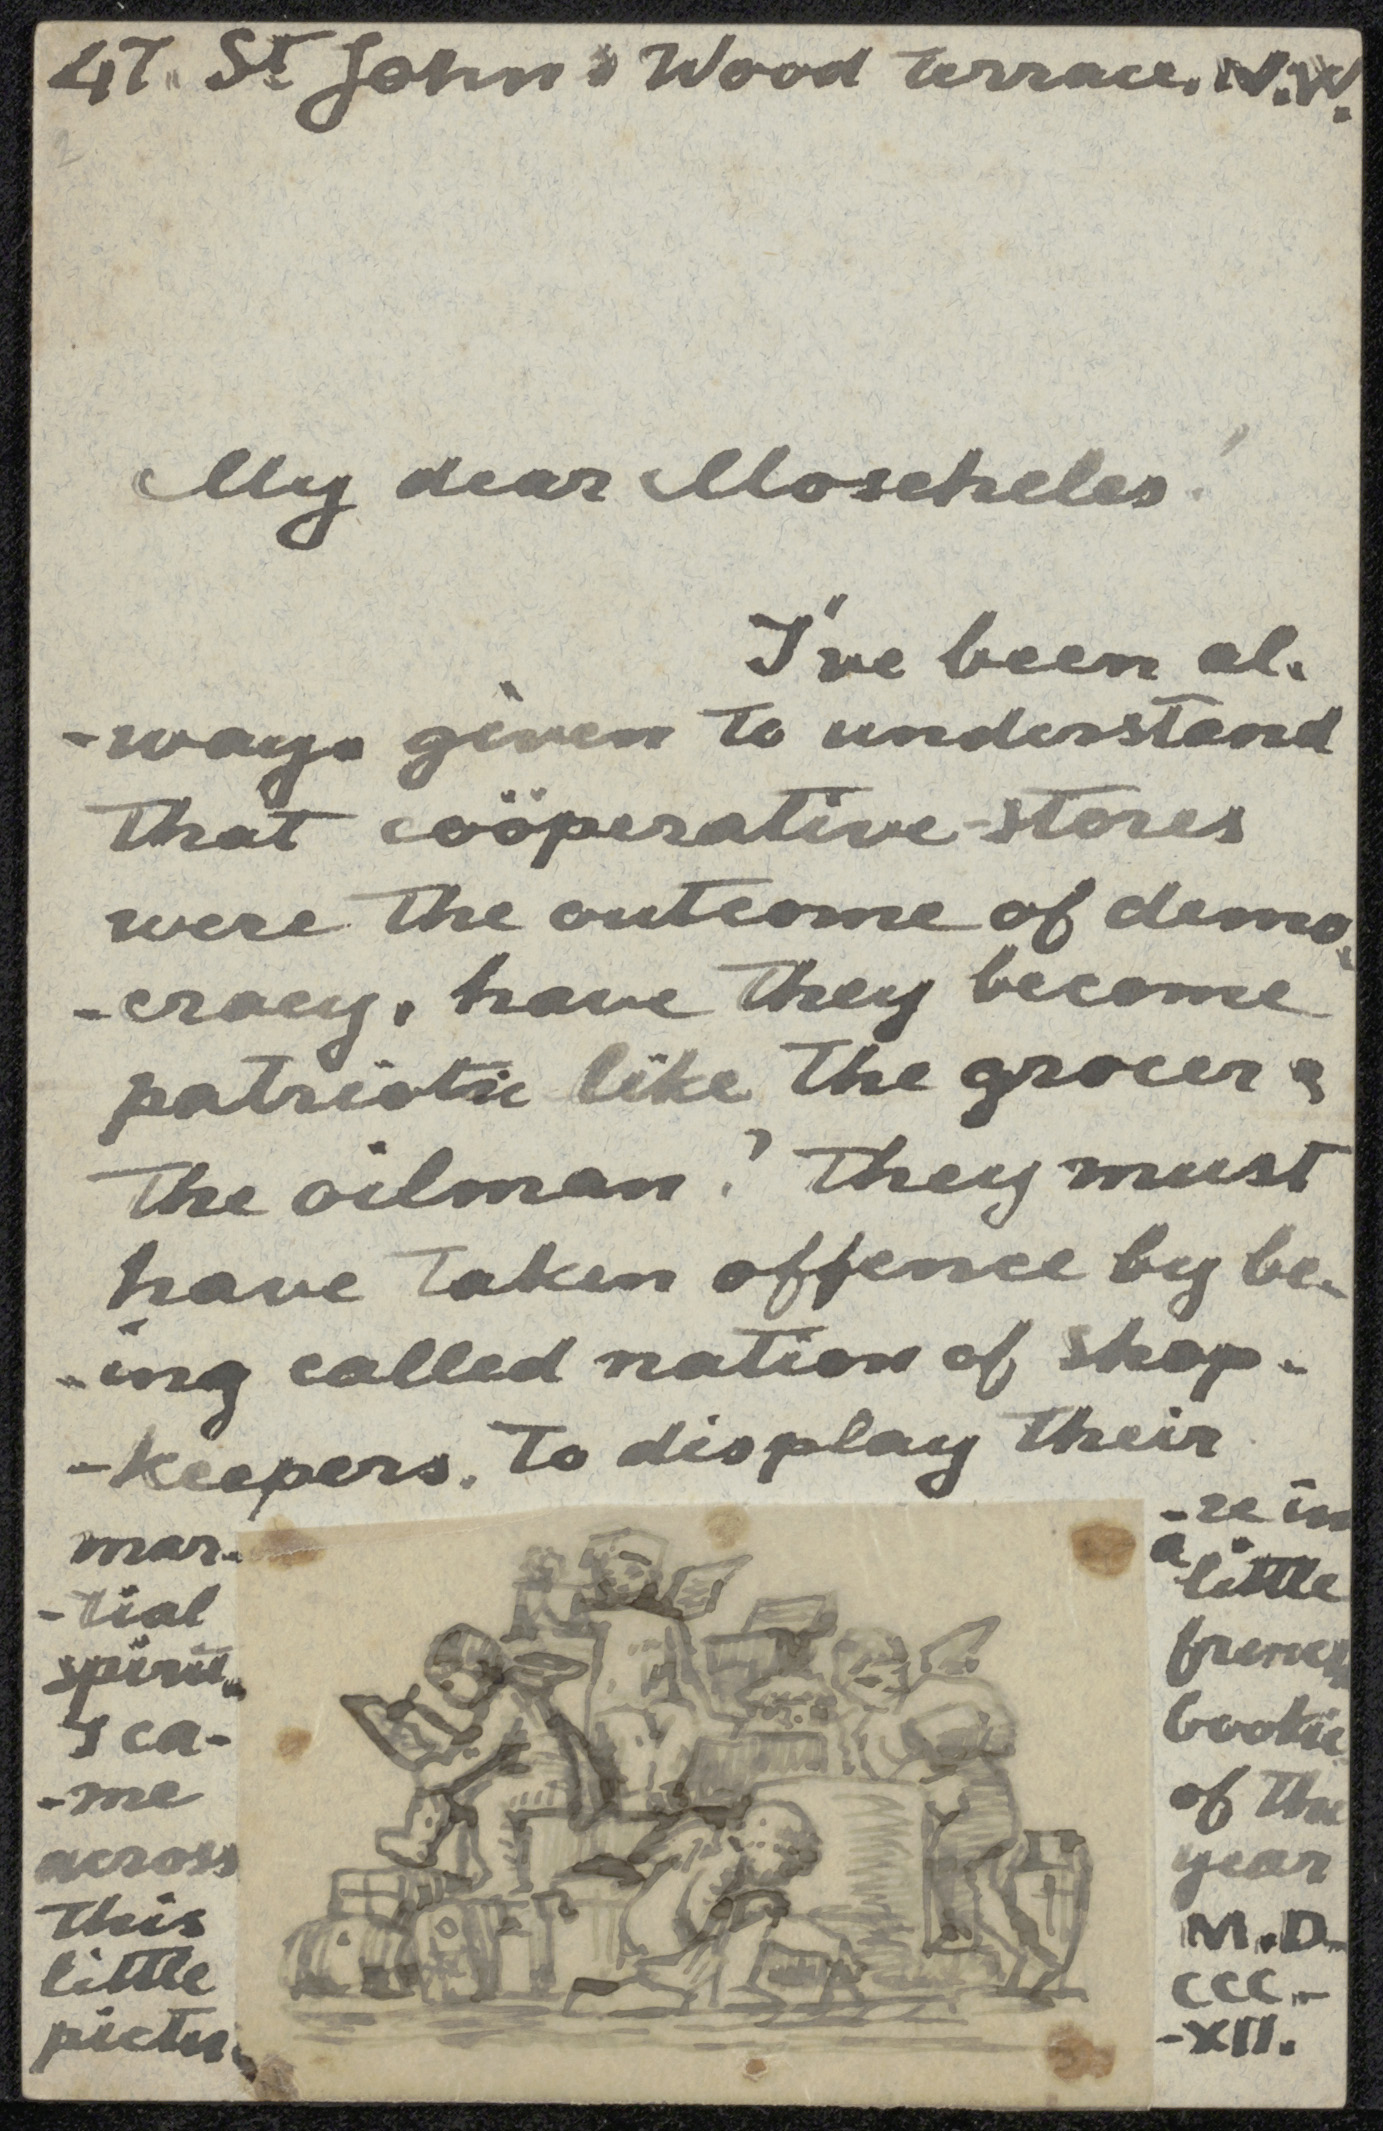 47. St John's Wood Terrace. N.W.
2
My dear Moscheles!
I've been al-
-ways given to understand
that coöperative-stores
were the outcome of demo-
-cracy, have they become
patriotic like the grocer &
the oilman? They must
have taken offence by be-
-ing called nation of shop-
-keepers. To display their
mar-
-tial
spirit.
I ca-
-me
across
this
little
pictu-
-re in
a little
french
bookie
of the
year
M.D.
CCC.-
-XII.